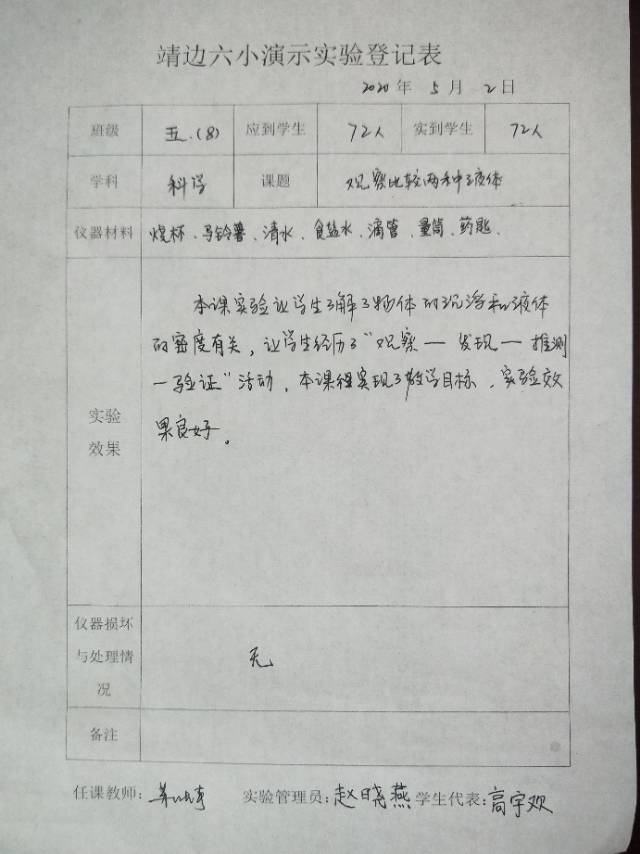 靖边六小演示实验登记表
2020年 5月 2日
班级 五.(8) 应到学生 72人 实到学生 72人
学科 科学 课题 观察比较两种液体
仪器材料 烧杯、马铃薯、清水、食盐水、滴管、量筒、药匙、
实验
效果
本课实验让学生了解了物体的沉浮和液体
的密度有关，让学生经历了“观察一发现一推测
一验证”活动，本课程实现了教学目标，实验效
果良好。
仪器损坏
与处理情
况
无
备注
任课教师： 实验管理员：赵晓燕 学生代表：高宇欢